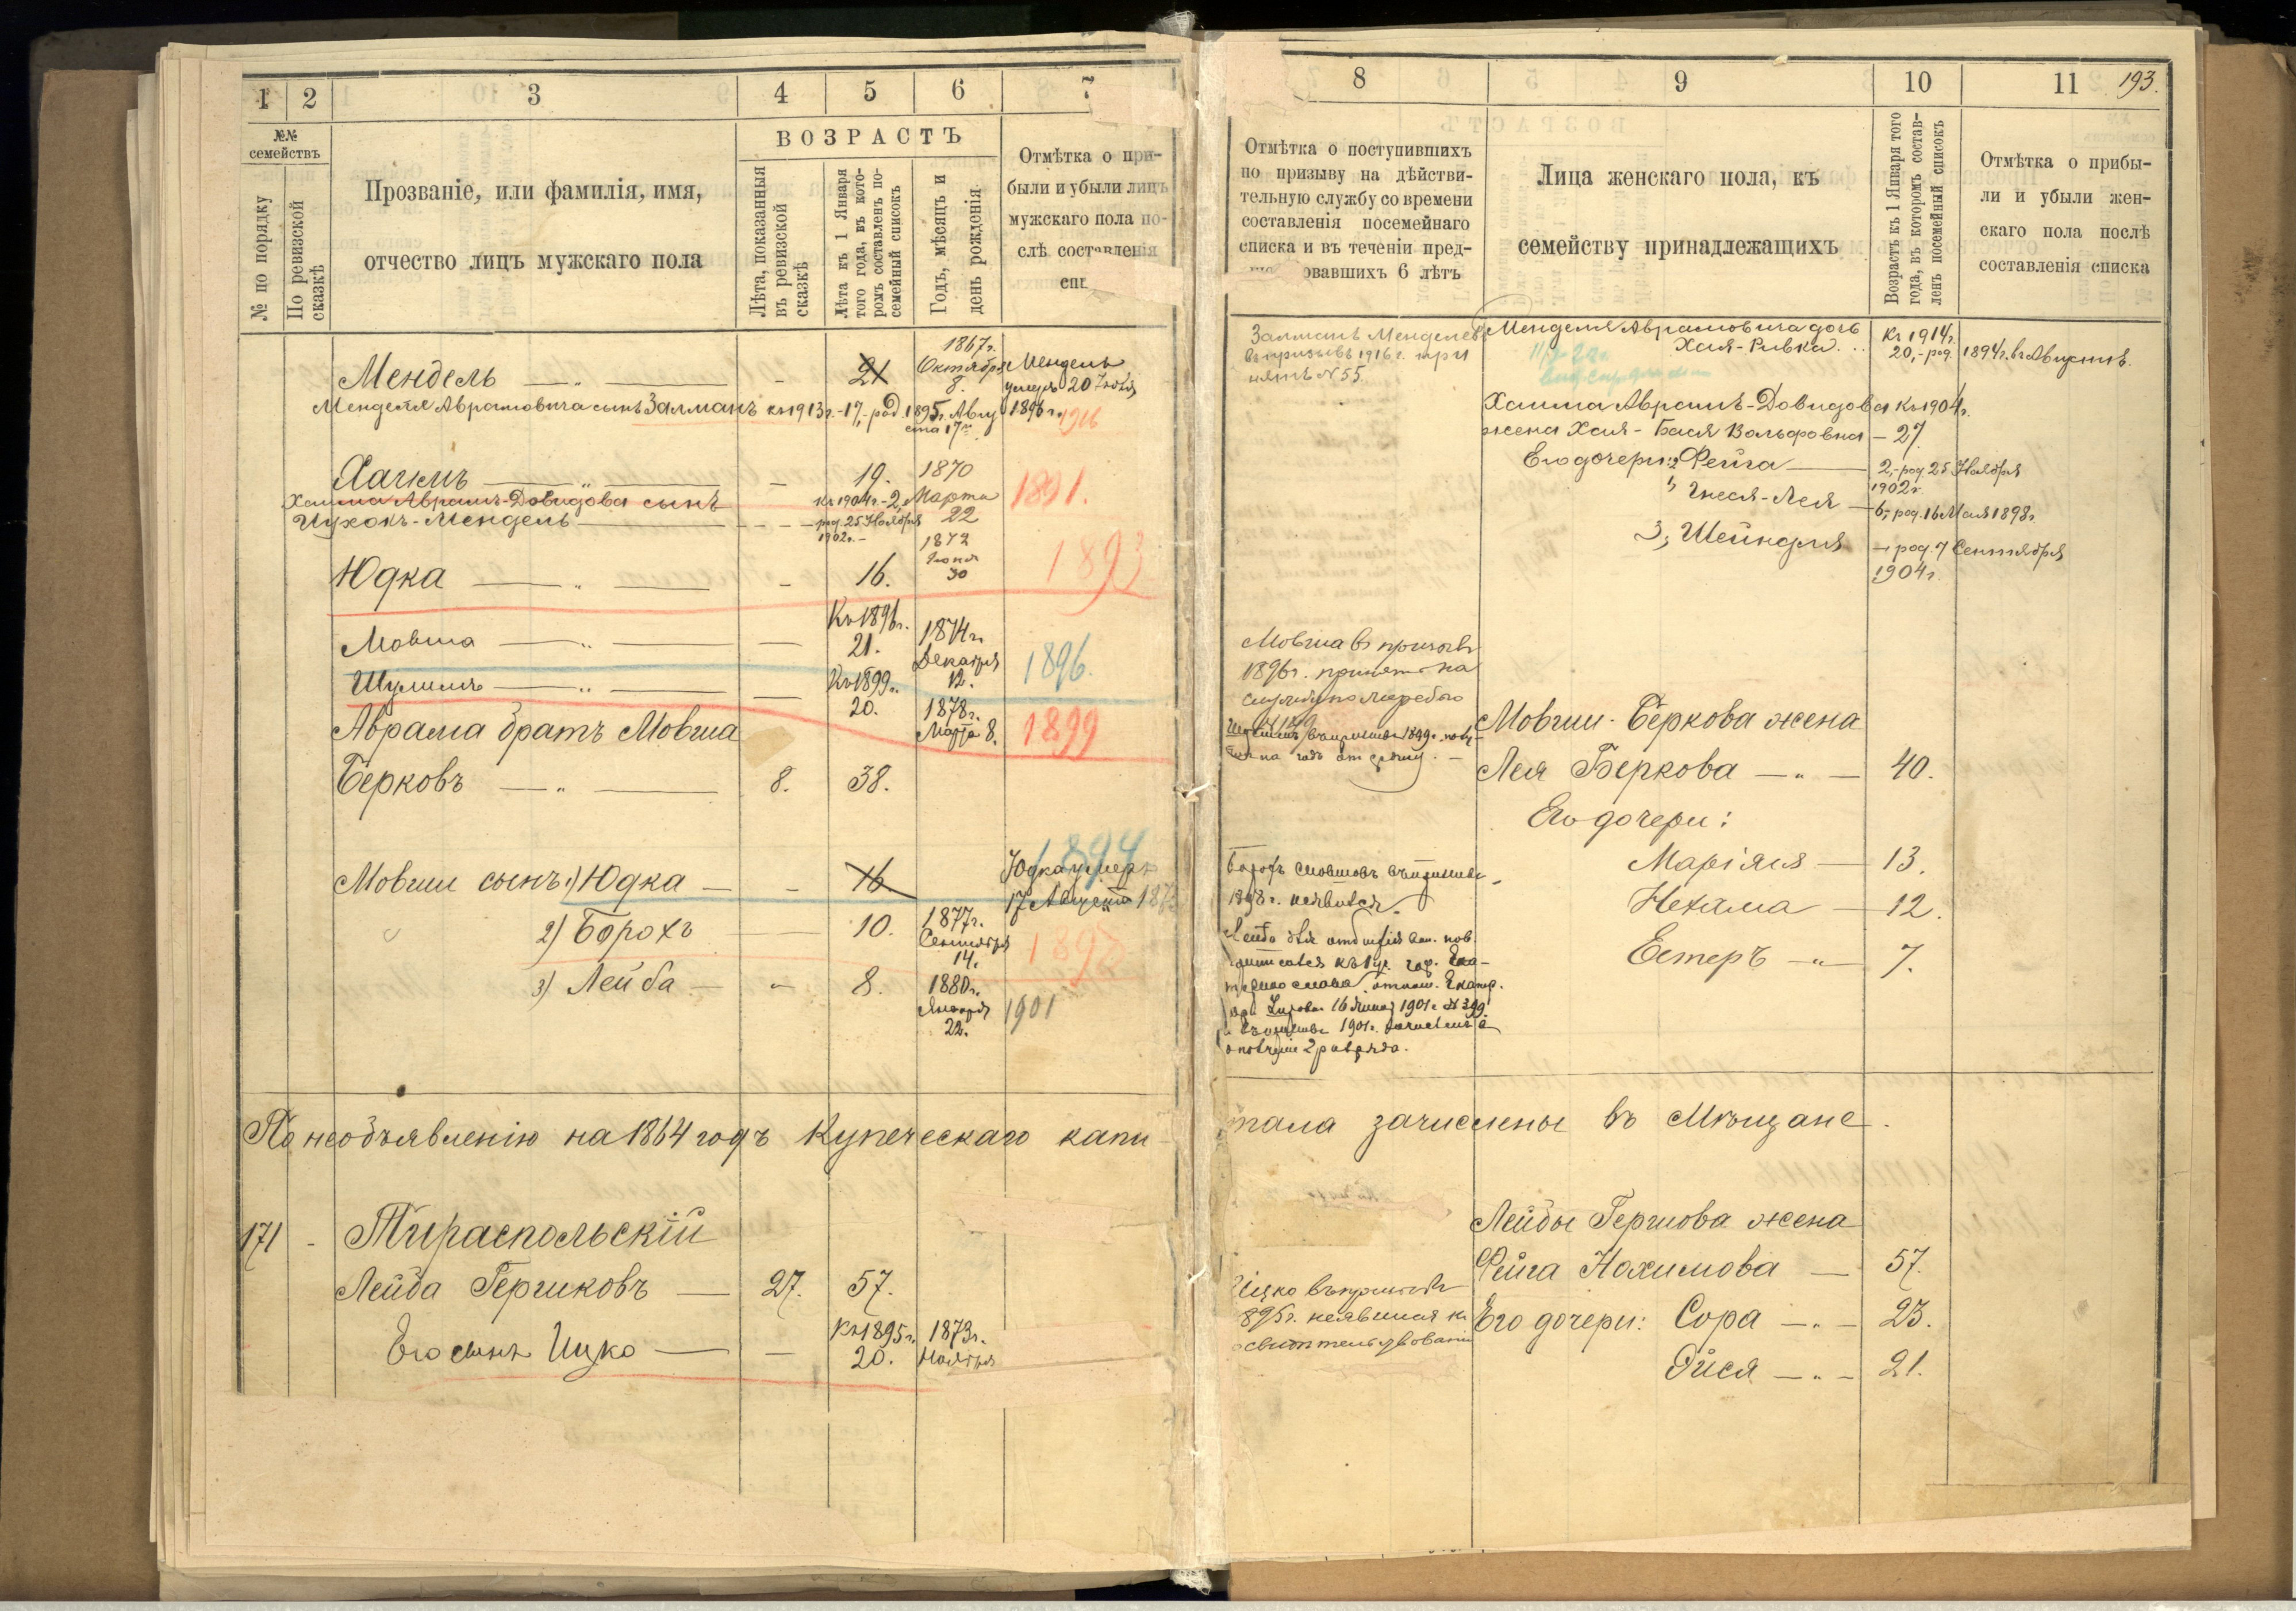 1
2
3
4
5
6
№№
семействъ
№ по порядку
По ревизской
сказкѣ
Прозваніе, или фамилія, имя,
отчество лицъ мужскаго пола
ВОЗРАСТЪ
Лѣта, показанныя
въ ревизской
сказкѣ
Лѣта къ 1 Января
того года, въ кото-
ромъ составленъ по-
семейный списокъ
Годъ, мѣсяцъ и
день рожденія
Отмѣтка о при-
были и убыли лицъ
мужскаго пола по-
слѣ составленія
Мендель — „ — - 21 1867г. Октября 8. Мендель
умеръ 20 Іюля
1896 г.
Менделя Аврамовича сынъ Залманъ къ 1913г. - 17, - род. 1895г. Авгу
ста 17го 1916
Хаимъ — „ — - 19. 1870
Марта
22
1891.
Хаима Аврамъ-Довидова сынъ къ 1904г. - 2,
Ицхокъ-Мендель — род. 25 Ноября
1902г. -
Юдка — „ — - 16. 1872
Іюня
30
1893
Мовша — „ — Къ 1896г.
21.
1874г.
Декабря
12.
1896.
Шулимъ — „ — Къ 1899г.
20.
1878г.
Марта 8.
1899
Аврама братъ Мовша
Берковъ — „ — 8. 38.
1894
Мовши сынъ: 1) Юдка — - 16 Юдка умеръ
17 Августа
2) Борохъ — 10. 1877г.
Сентября
14.
1898
3) Лейба — „ 8. 1880г.
Января
22.
1901
По необъявленію на 1864 годъ Купеческаго капи-
171 - Тираспольскій
Лейба Гершковъ — 27. 57.
Его сынъ Ицко — — Къ 1895г.
20.
1873г.
Ноября
8
9
10
11
193.
Отмѣтка о поступившихъ
по призыву на дѣйстви-
тельную службу со времени
составленія посемейнаго
списка и въ теченіи пред-
овавшихъ 6 лѣтъ
Лица женскаго пола, къ
семейству принадлежащихъ
Возрастъ къ 1 Января того
года, въ которомъ состав-
ленъ посемейный списокъ
Отмѣтка о прибы-
ли и убыли жен-
скаго пола послѣ
составленія списка
Залманъ Менделевъ
въ призывъ 1916 г. при
нятъ № 55
Менделя Аврамовича дочь
Хая-Ривка... Къ 1914г.
20, - род. 1894г. въ Августѣ.
Хаима Аврамъ-Довидова Къ 1904г.
жена Хая-Бася Вольфовна - 27.
Его дочери: 2, Фейга — 2, - род. 25 Ноября
1902г.
1, Гнеся-Лея — 6, род. 16 Мая 1898г.
3, Шейндля — род. 7 Сентября
1904г.
Мовша въ призывъ
1896г. принятъ на
службу по жребію
Шулимъ въ призывъ 1899г.
на годъ
Мовши-Беркова жена
Лея Беркова — „ — 40.
Его дочери:
Маріяся — 13.
Нехама — 12.
Естеръ — „ 7.
Борохъ Мовшовъ въ призывъ
1898г. неявился.
Лейба для отбытія воин. пов.
Екатер.
1901г. № 399
въ призывъ 1901г. зачисленъ въ
ополченіе 2 разряда.
тала зачислены въ Мѣщане.
Лейбы Гершова жена
Фейга Нохимова — 57.
Ицко въ призывъ
1895г. неявился къ
освидѣтельствованію
Его дочери: Сора — „ — 23.
Ойся — „ — 21.